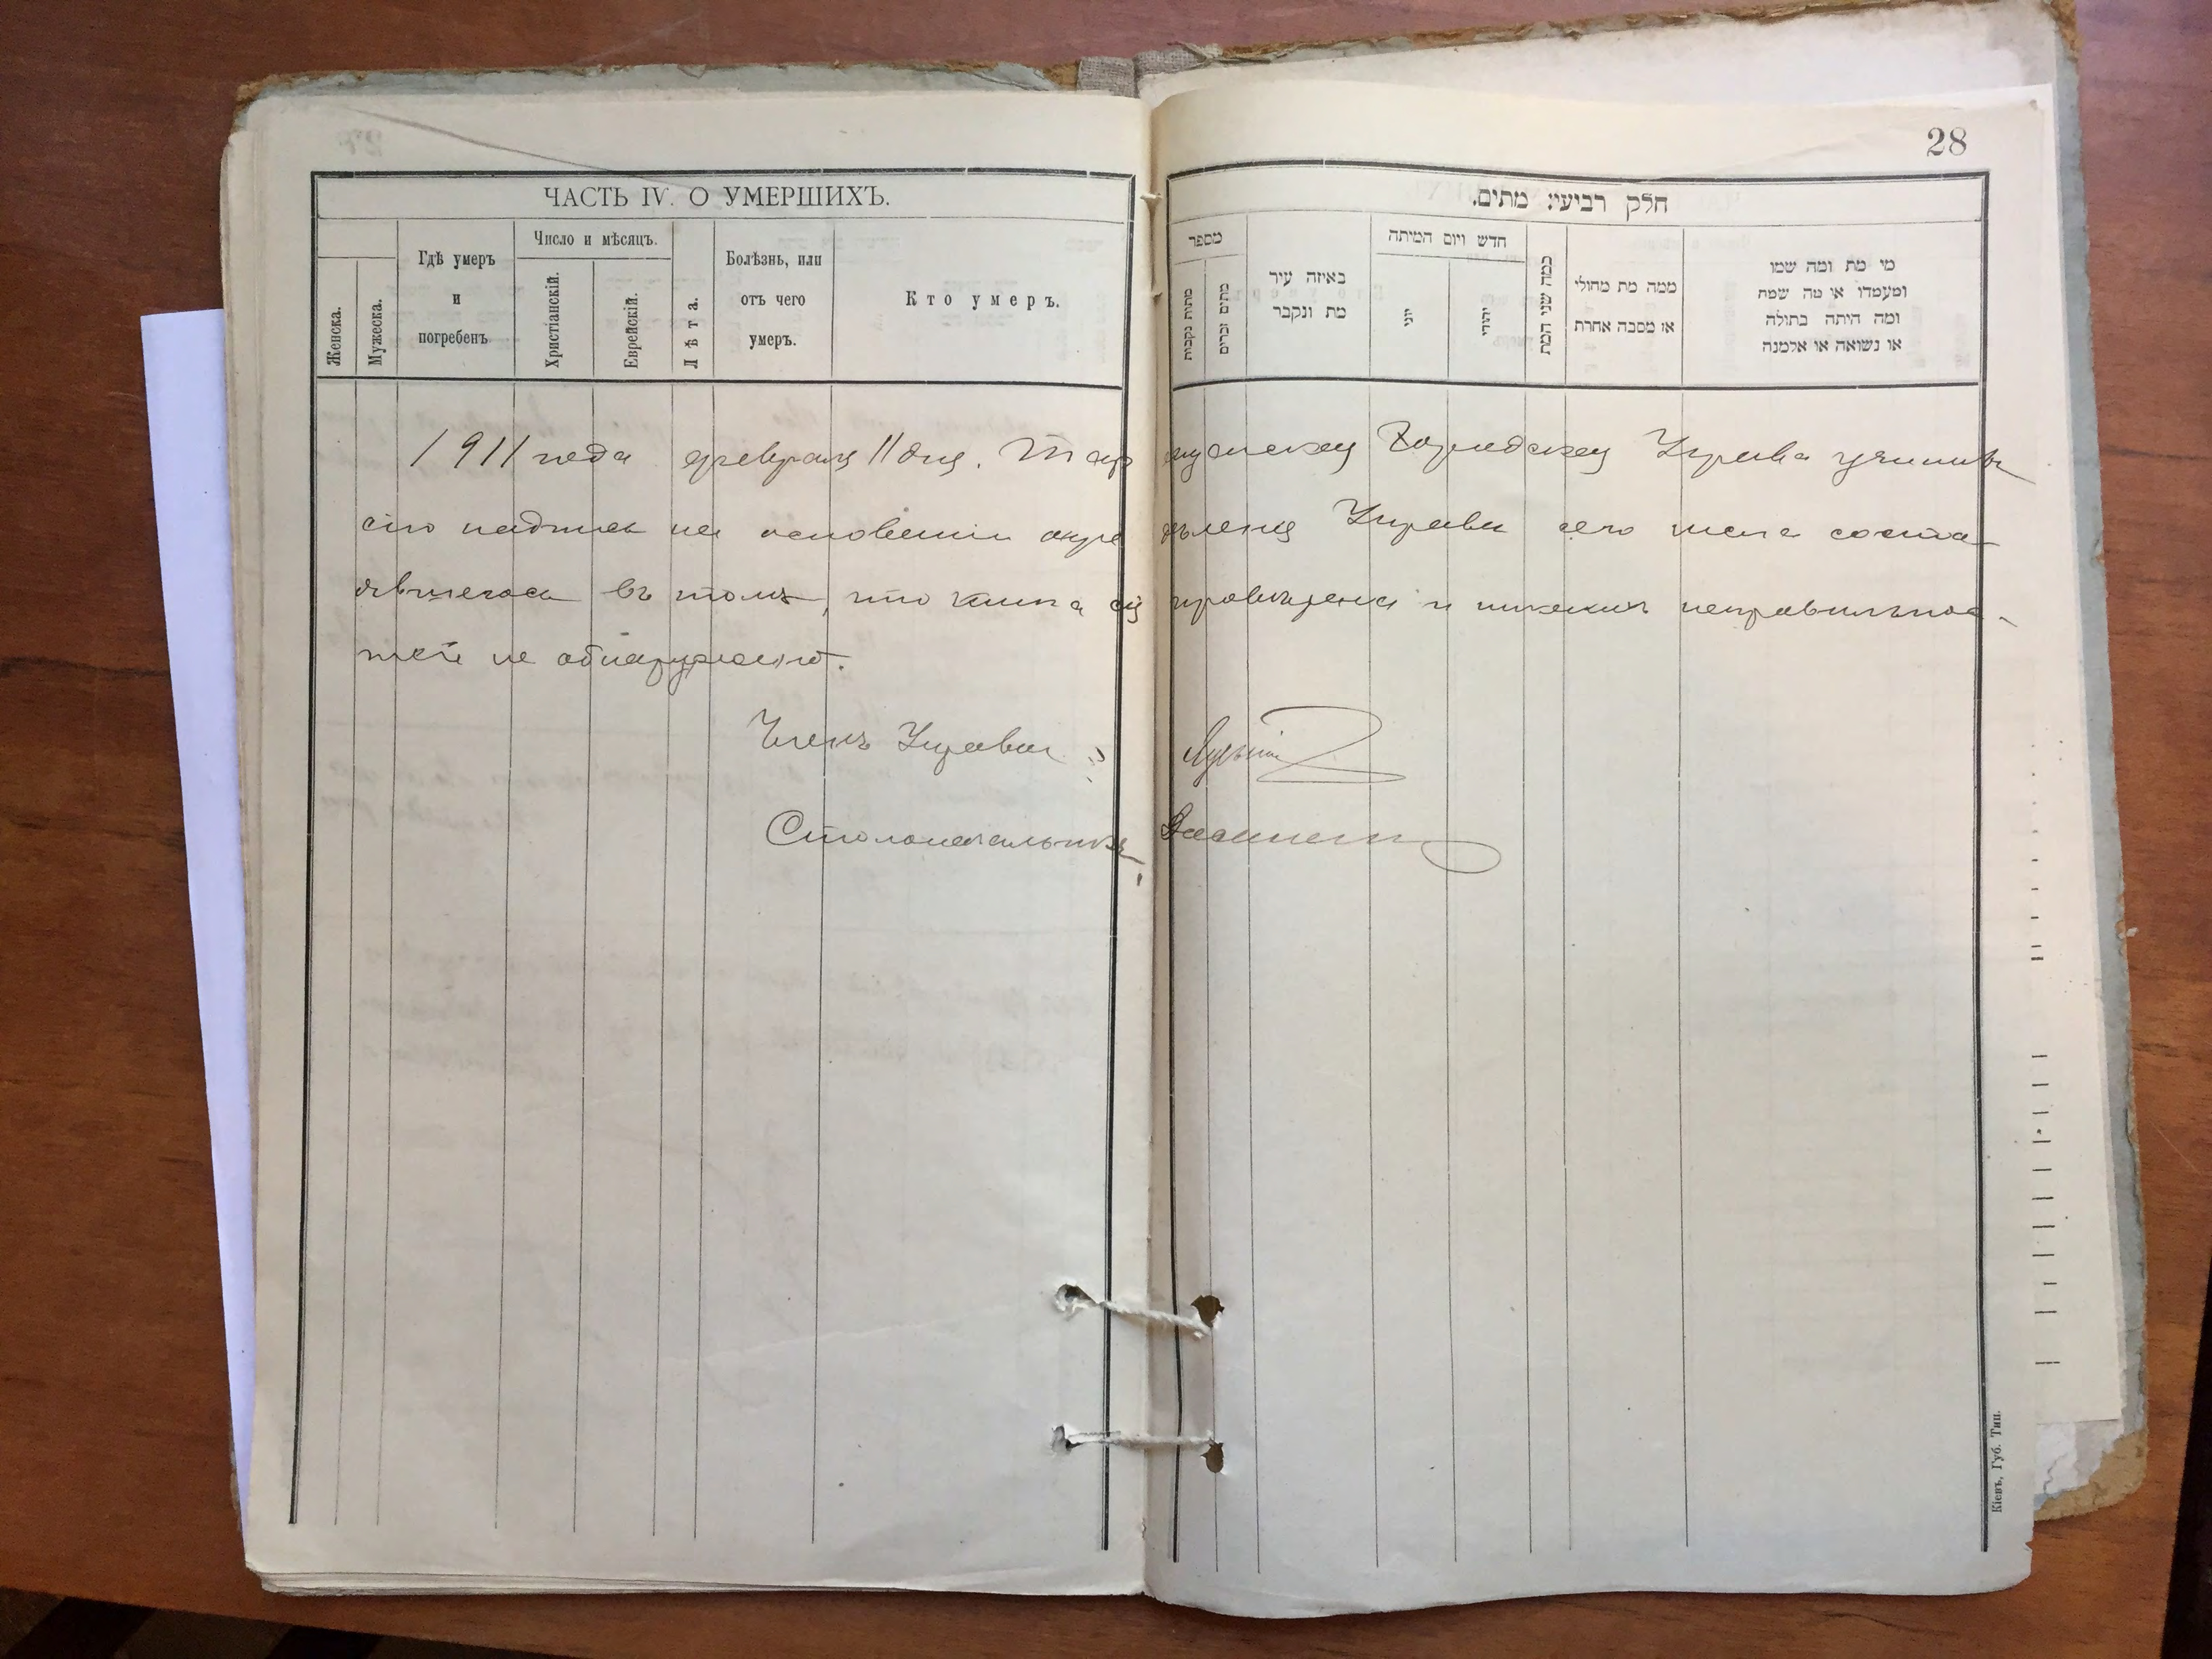 28
ЧАСТЬ IV. О УМЕРШИХЪ.
Женска.
Мужеска.
Гдѣ умеръ
и
погребенъ
Число и мѣсяцъ.
Христіанскій.
Еврейскій.
Лѣта.
Болѣзнь, или
отъ чего
умеръ.
Кто умеръ.
חלק רביעי: מתים.
מספר
מתות נקבות
מתים זכרים
באיזה עיר
מת ונקבר
חדש ויום המיתה
יוני
יהודי
כמה שני המת
ממה מת מחולי
או מסבה אחרת
מי מת ומה שמו
ומעמדו או מה שמה
ומה היתה בתולה
או נשואה או אלמנה
1911 года февраля 11 дня. Городская Управа учинила
сію надпись на основаніи опредѣленія Управы сего числа состо-
явшегося въ томъ, что книга сія провѣрена и никакихъ неправильнос-
тей не обнаружено.
Членъ Управы
Столоначальникъ
Кіевъ, Губ. Тип.